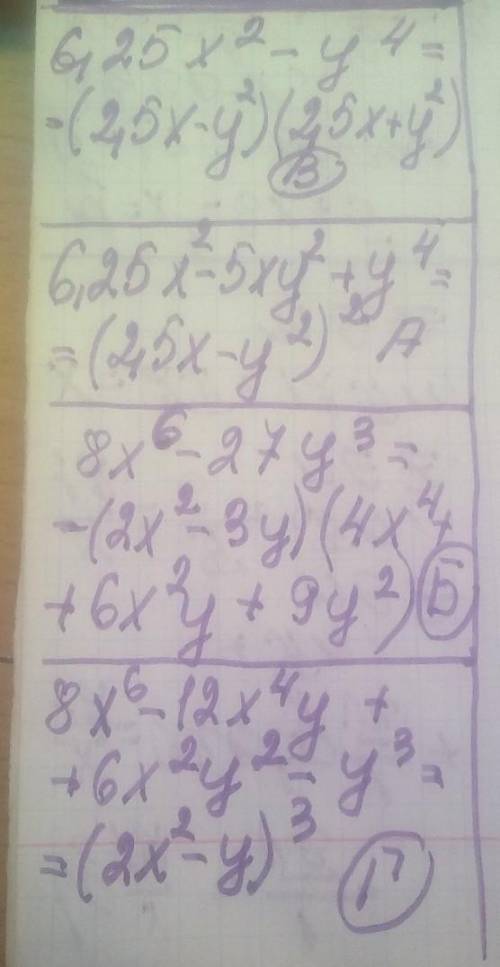 6,25x² - y⁴ =
= (2,5x - y²)(2,5x + y²)
В
6,25x² - 5xy² + y⁴ =
= (2,5x - y²)² А
8x⁶ - 27y³ =
= (2x² - 3y)(4x⁴ +
+ 6x²y + 9y²) Б
8x⁶ - 12x⁴y +
+ 6x²y² - y³ =
= (2x² - y)³ Г